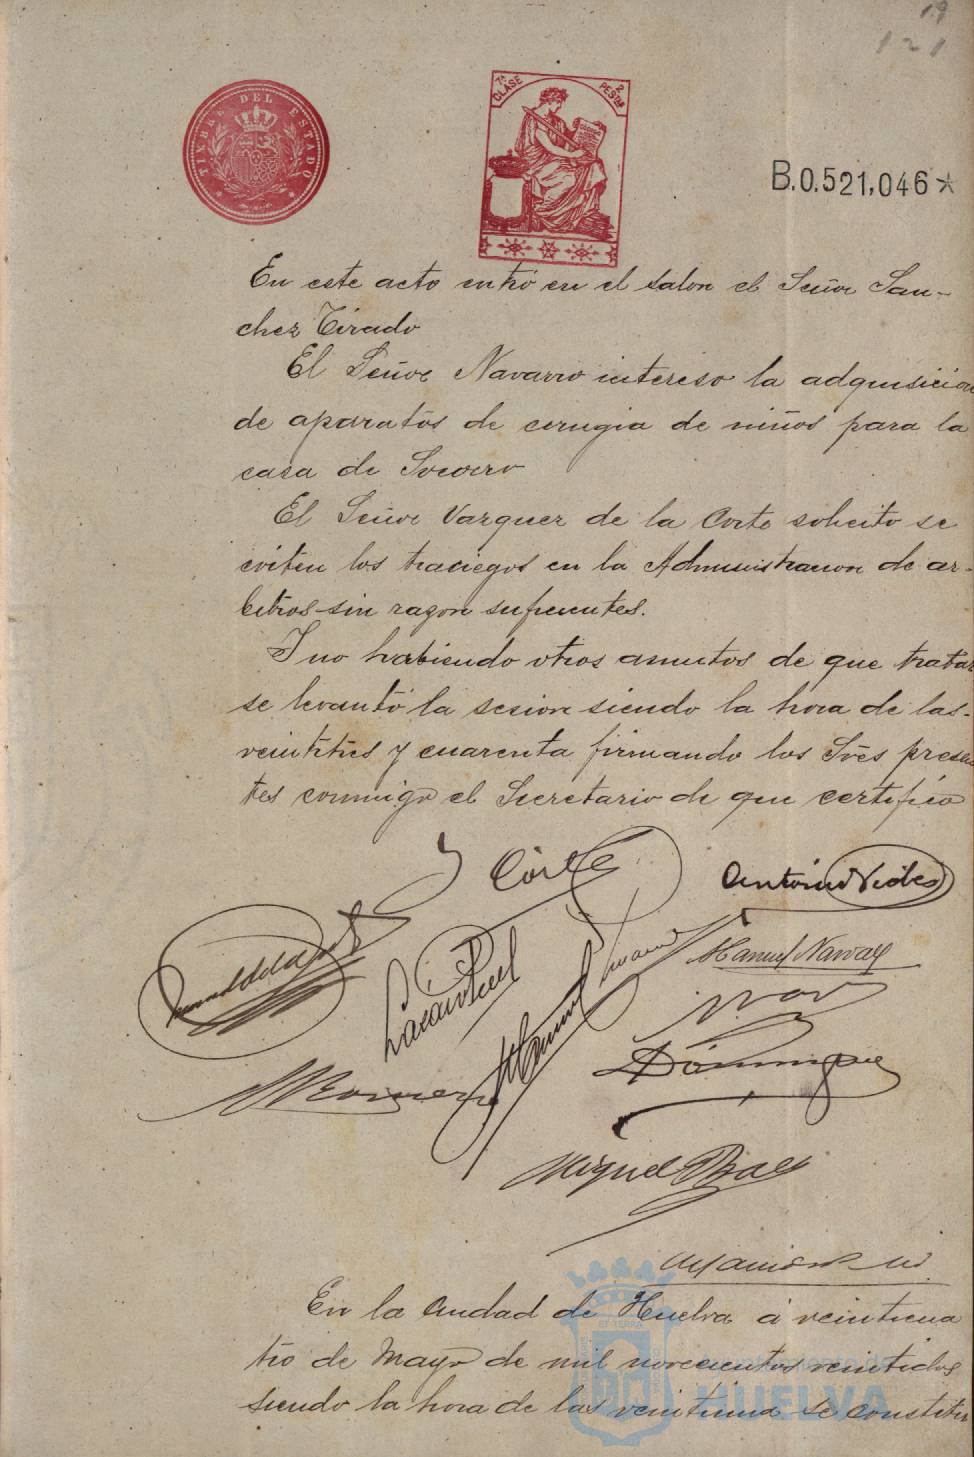 19
121
TIMBRE DEL ESTADO
7ª CLASE
2 PESTAS
B.0.521,046*
En este acto entró en el salon el Señor San-
chez Tirado
El Señor Navarro intereso la adquisicion
de aparatos de cirugia de niños para la
casa de Socorro
El Señor Vazquez de la Corte solicito se
eviten los trasiegos en la Administracion de ar-
bitros sin razon suficientes.
Y no habiendo otros asuntos de que tratar
se levantó la sesion siendo la hora de las-
veintitrés y cuarenta firmando los Srés presen
tes conmigo el Secretario de que certifico
Y Córte
Antonio
Manuel Navarro
M Romero
Manuel
Dominguez
Miguel
En la Ciudad de Huelva á veinticua
tro de Mayo de mil novecientos veintidos
siendo la hora de las veintiuna se constitu
Ayuntamiento de
HUELVA